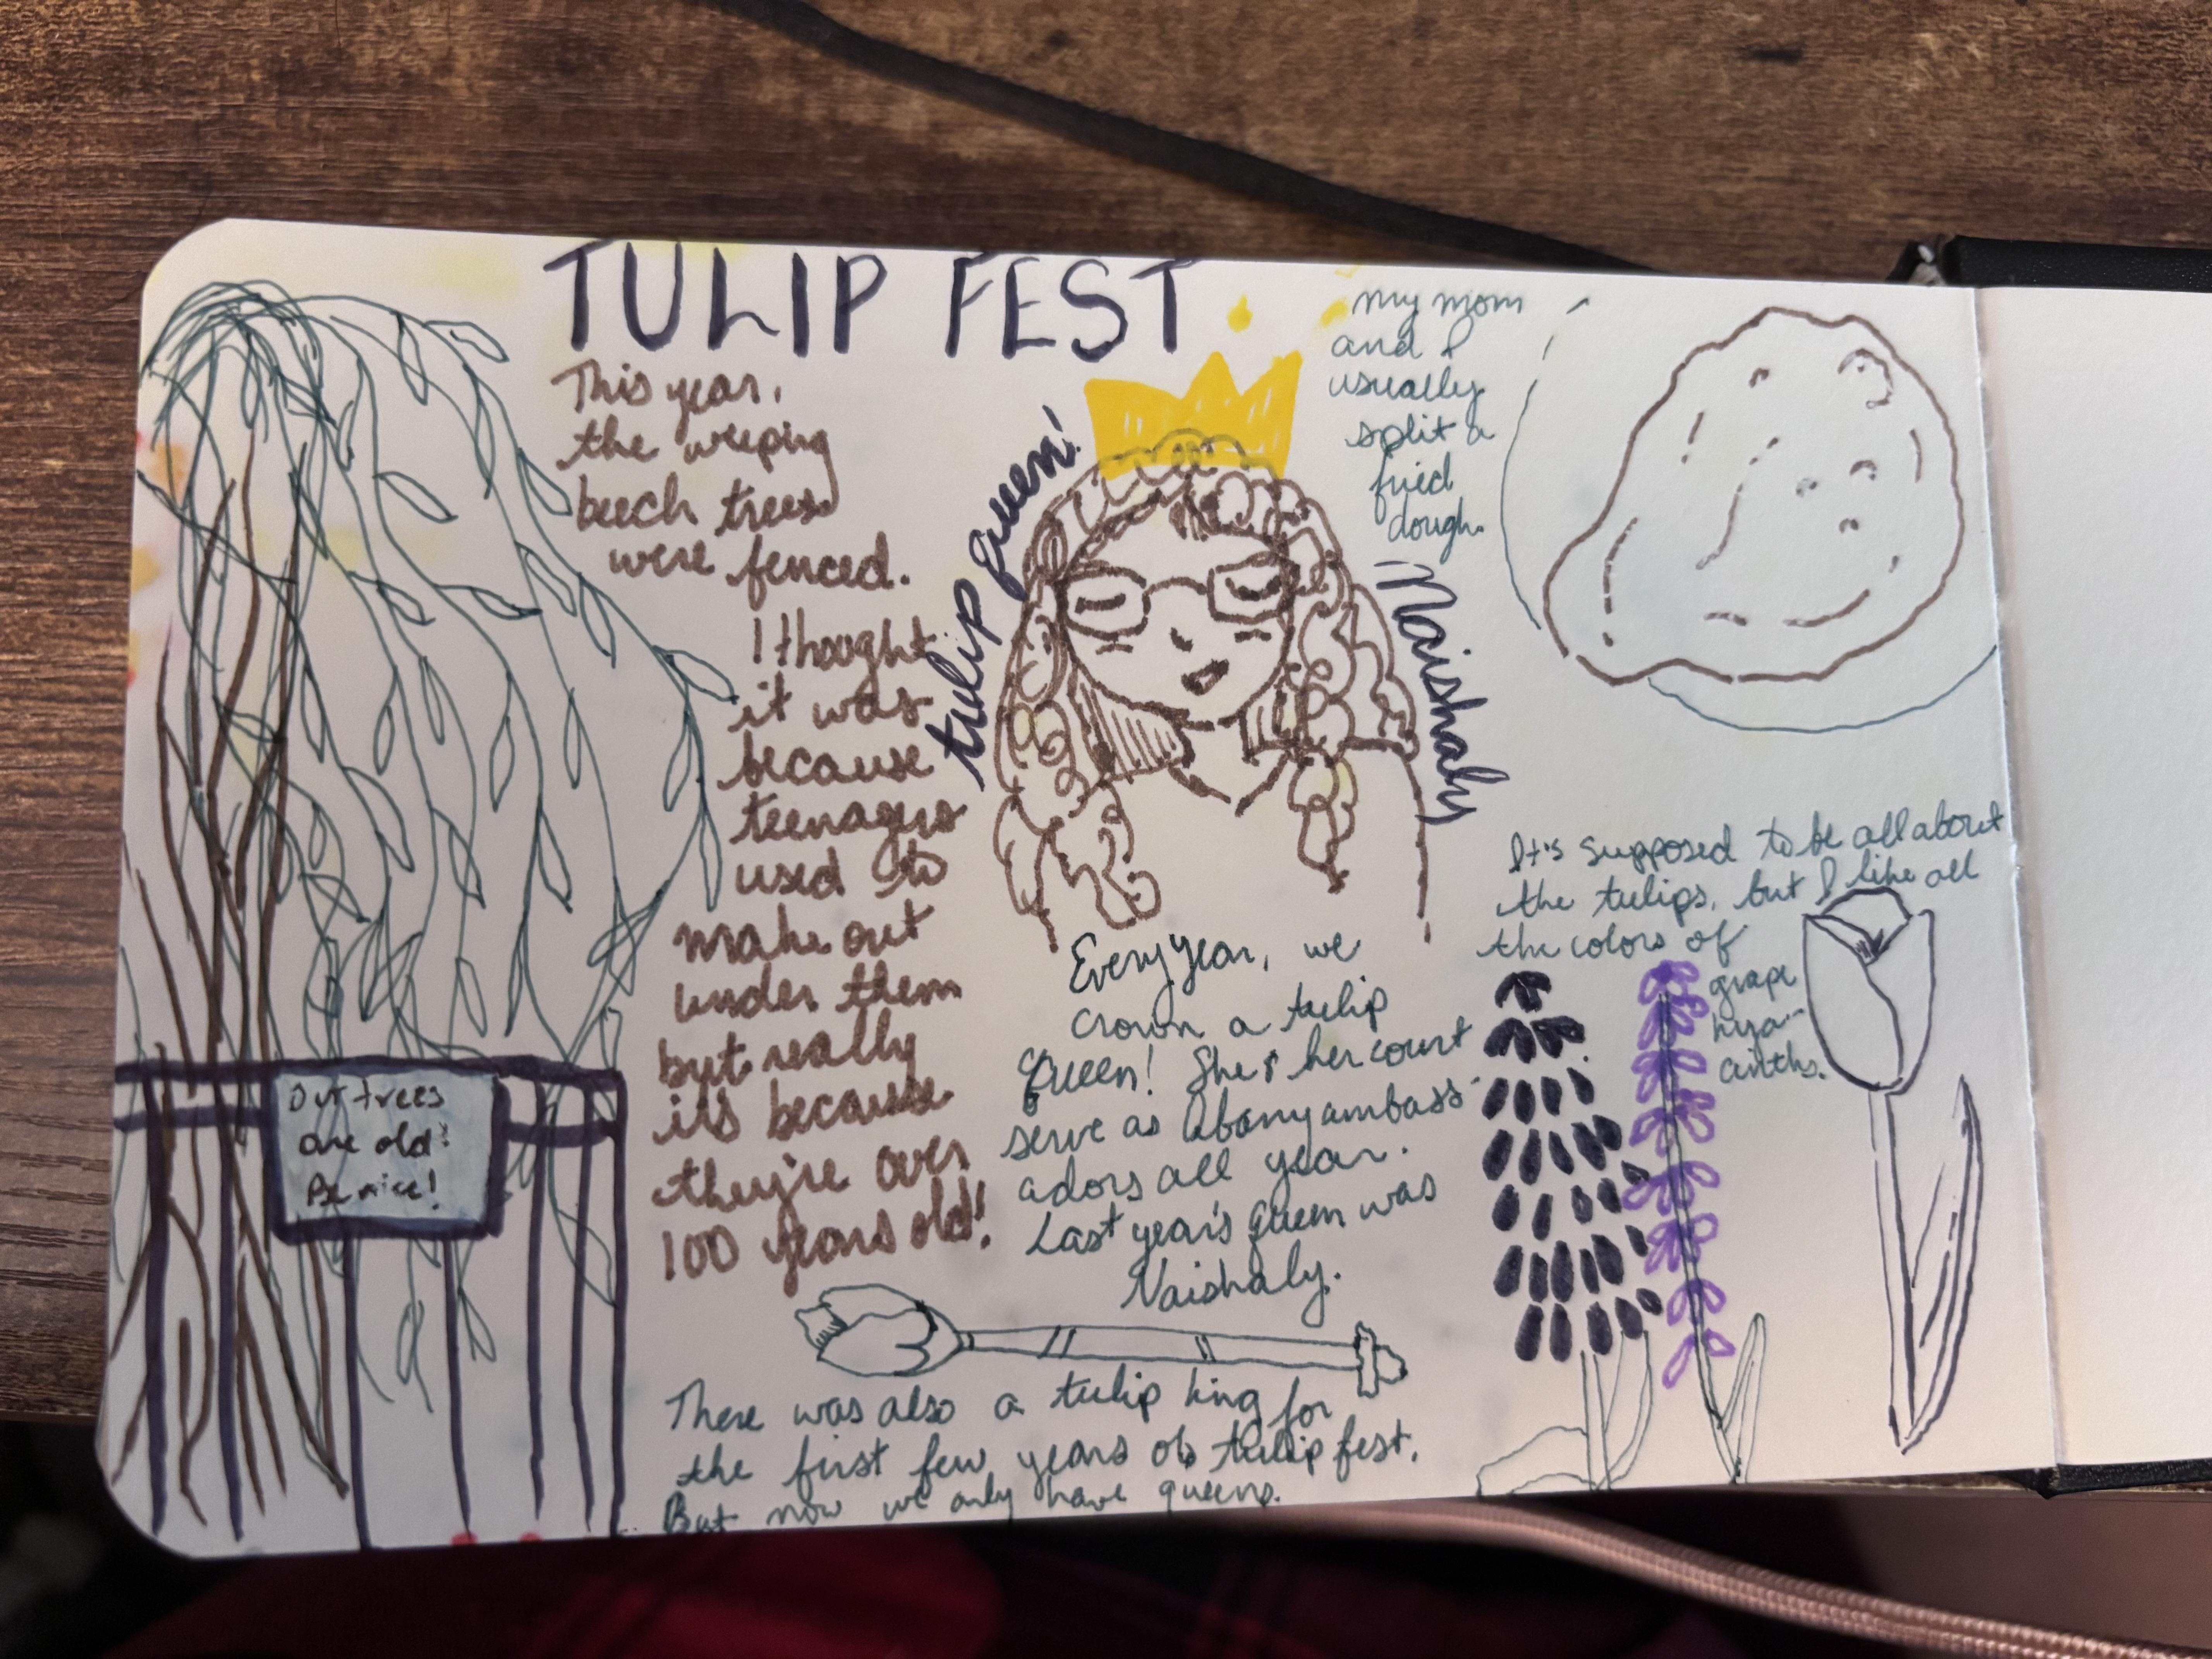 TULIP FEST
This year,
the weeping
beech trees
were fenced.
I thought
it was
because
teenagers
used to
make out
under them
but really
it's because
they're over
100 years old!
Our trees
are old!
Be nice!
tulip queen!
Naishaly
Every year, we
crown a tulip
Queen! She & her court
serve as Albany ambass-
adors all year.
Last year's queen was
Naishaly.
There was also a tulip king for
the first few years of tulip fest.
But now we only have queens.
my mom
and I
usually
split a
fried
dough.
It's supposed to be all about
the tulips, but I like all
the colors of
grape
hya-
cinths.